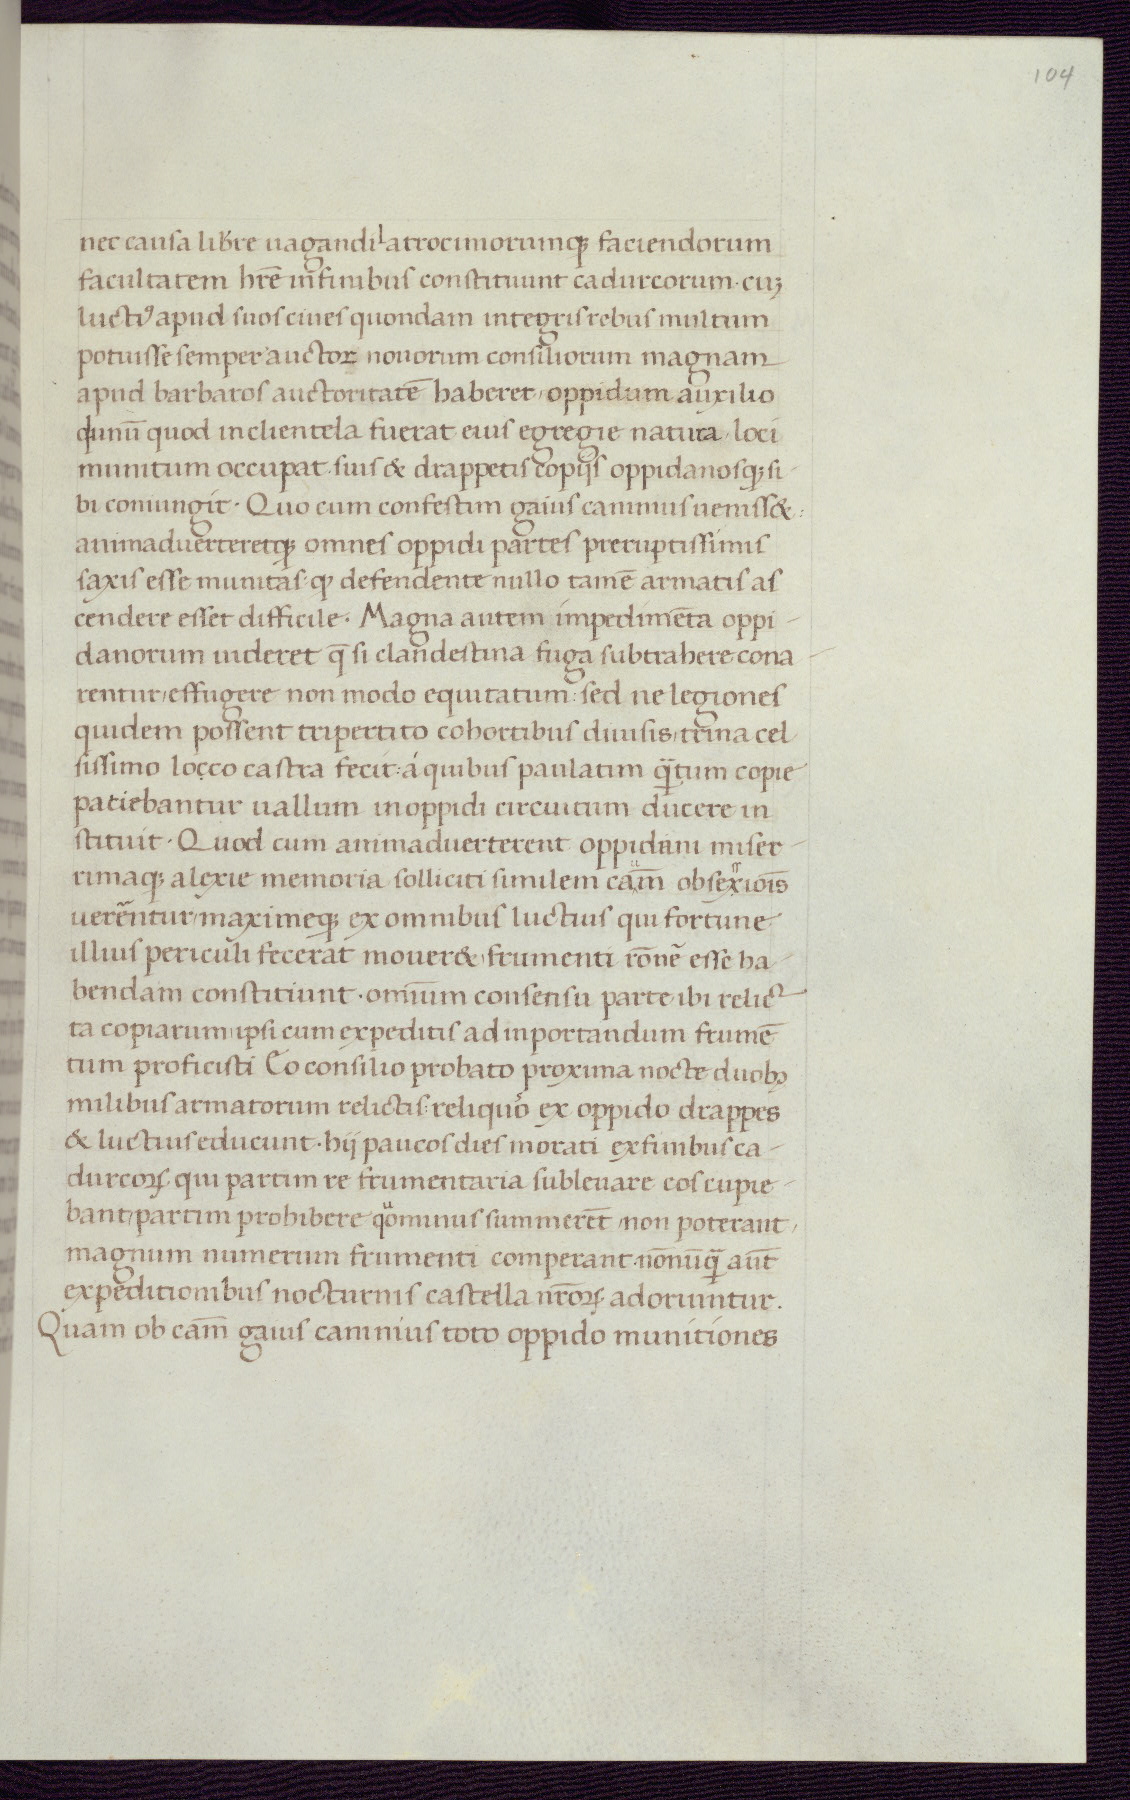 104
nec causa lib̄re uagandi latrociniorumq; faciendorum
facultatem hr̄e in finibus constituunt cadurcorum · cuȝ
luctiꝰ apud suos ciues quondam integris rebus multum
potuisse semper auctor nouorum consiliorum magnam
apud barbaros auctoritatē haberet, oppidum auxilio
dunū quod in clientela fuerat eius egregie natura, loci
munitum occupat suis & drappetis copijs oppidanosq; si-
bi coniungit · Quo cum confestim gaius caninius ueniss& :
animaduerteretq; omnes oppidi partes preruptissimis
saxis esse munitas · qꝫ defendente nullo tamē armatis as
cendere esset difficile · Magna autem impedimēta oppi-
danorum uideret q̄ si clandestina fuga subtrahere cona-
rentur, effugere non modo equitatum : sed ne legiones
quidem possent tripertito cohortibus diuisis, trina cel
sissimo locco castra fecit : á quibus paulatim qͣ̄tum copie
patiebantur uallum in oppidi circuitum ducere in
stituit · Quod cum animaduerterent oppidani miser-
rimaq; alexie memoria solliciti similem cām obsexiōis
uerēntur, maximeq; ex omnibus luctius qui fortune
illius periculi fecerat mouer&, frumenti rōnē esse ha-
bendam constitiunt · omīum consensu parte ibi relic-
ta copiarum, ipsi cum expeditis ad inportandum frumē
tum proficisti Eo consilio probato proxima nocte duobꝫ
milibus armatorum relictis : reliquo᷒ ex oppido drappes
& luctius educunt · hij paucos dies morati ex finibus ca-
durcoꝝ qui partim re frumentaria subleuare eos cupie-
bant, partim prohibere qͦominus summerēt, non poterant,
magnum numerum frumenti comperant · nōnūqͣ̄ aūt
expeditionibus nocturnis castella nr̄oꝝ adoriuntur.
Quam ob cām gaius caninius toto oppido munitiones